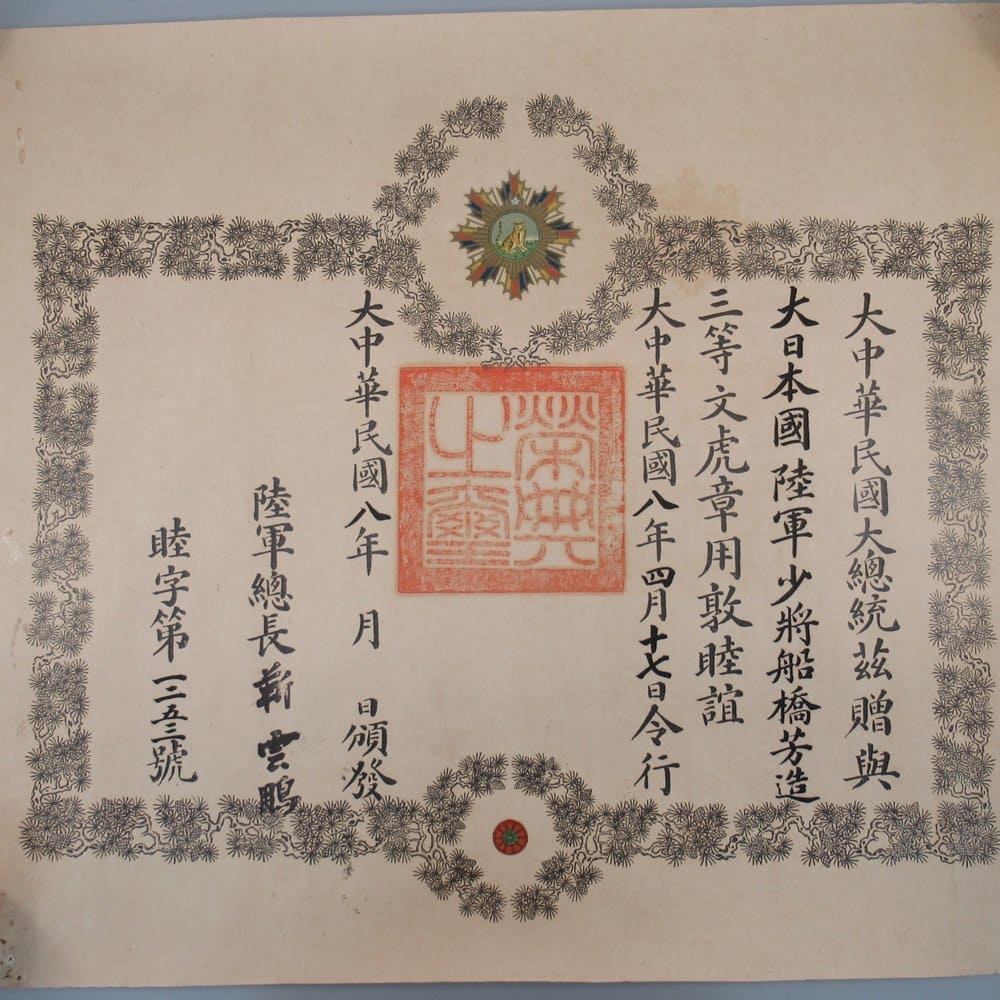 大中華民國大總統茲贈與
大日本國陸軍少將船橋芳造
三等文虎章用敦睦誼
大中華民國八年四月十七日令行
榮典之璽
大中華民國八年 月 日頒發
陸軍總長靳雲鵬
睦字第一二五三號